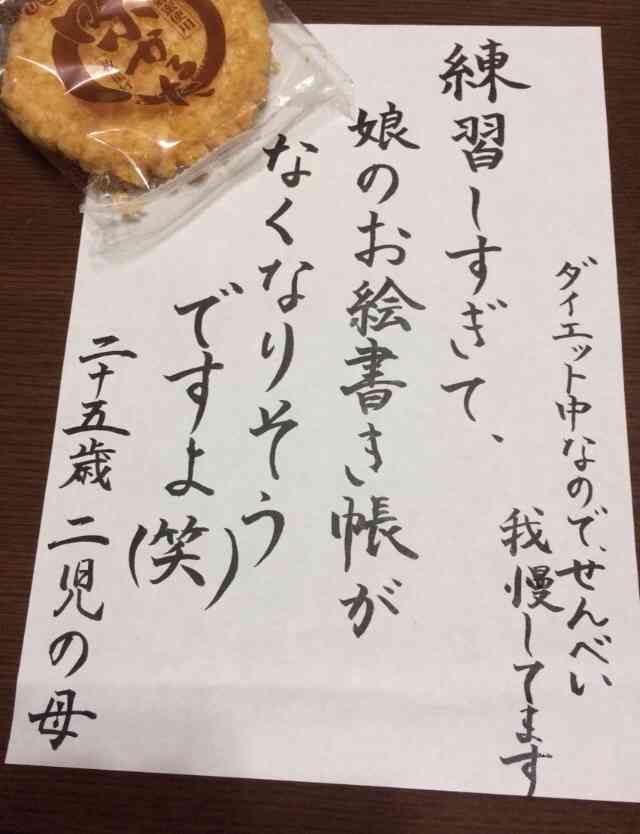 ダイエット中なので、せんべい
我慢してます
練習しすぎて、
娘のお絵書き帳が
なくなりそう
ですよ(笑)
二十五歳 二児の母